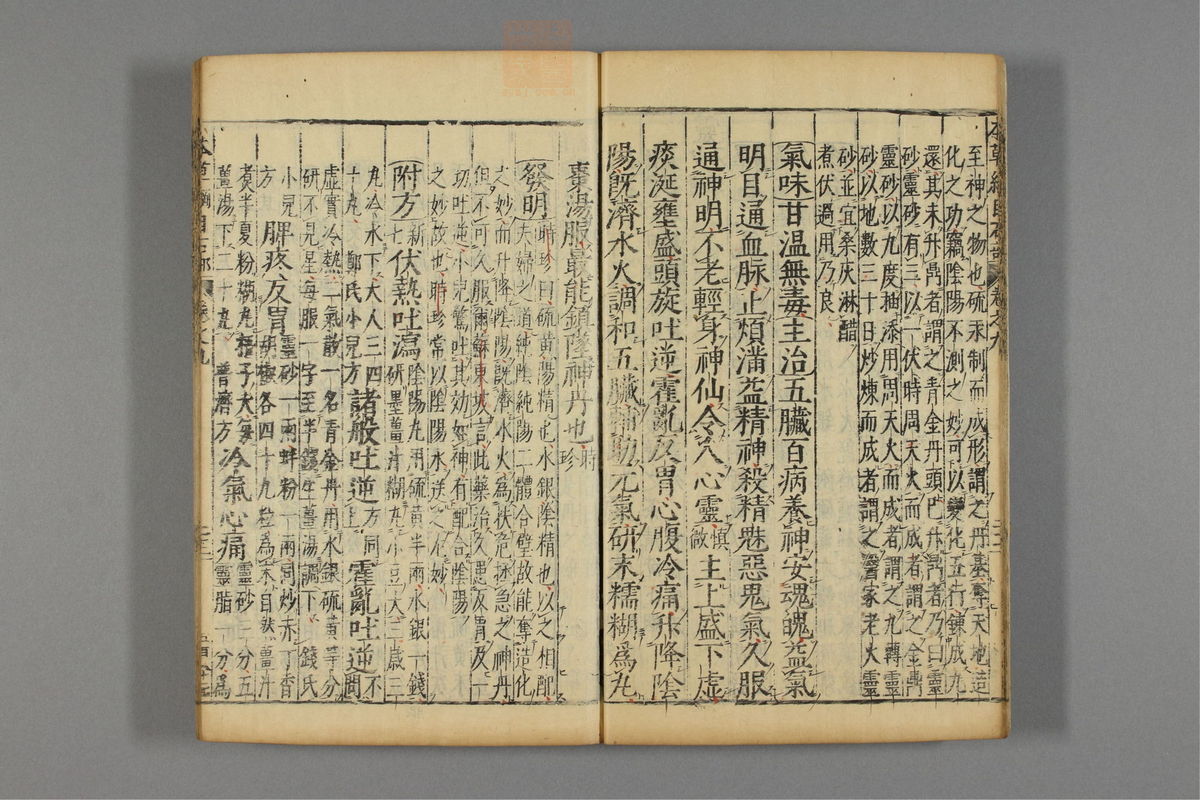 至神之物也硫汞制而成形謂之丹基奪天地造
化之功竊陰陽不測之妙可以變化五行鍊成九
還其未升鼎者謂之青金丹頭已升鼎者乃曰靈
砂靈砂有三以一伏時周天火而成者謂之金鼎
靈砂以九度抽添用周天火而成者謂之九轉靈
砂以地數三十日炒煉而成者謂之醫家老火靈
砂並宜桑灰淋醋
煮伏過用乃良
氣味甘溫無毒主治五臟百病養神安魂魄益氣
明目通血脉止煩滿益精神殺精魅惡鬼氣久服
通神明不老輕身神仙令人心靈慎微主上盛下虛
痰涎壅盛頭旋吐逆霍亂反胃心腹冷痛升降陰
陽既濟水火調和五臟輔助元氣研末糯糊爲丸
棗湯服最能鎮墜神丹也時珍
發明時珍曰硫黃陽精也水銀陰精也以之相配
夫婦之道純陰純陽二體合璧故能奪造化
之妙而升降陰陽既濟水火爲扶危拯急之神丹
但不可久服爾蘇東坡言此藥治久患反胃及一
切吐逆小兒驚吐其効如神有配合陰陽
之妙故也時珍常以陰陽水送之尤妙
附方新七伏熱吐瀉陰陽丸用硫黃半兩水銀一錢
研墨薑汁糊丸小豆大三歲三
丸冷水下大人三四
十丸鄭氏小兒方諸般吐逆方同上霍亂吐逆不問
虛實冷熱二氣散一名青金丹用水銀硫黃等分
研不見星每服一字至半錢生薑湯調下錢氏
小兒方脾疼反胃靈砂一兩蚌粉一兩同炒赤丁香
胡椒各四十九粒爲末自然薑汁
煮半夏粉糊丸梧子大每
薑湯下二十丸普濟方冷氣心痛靈砂三分五
靈脂一分爲